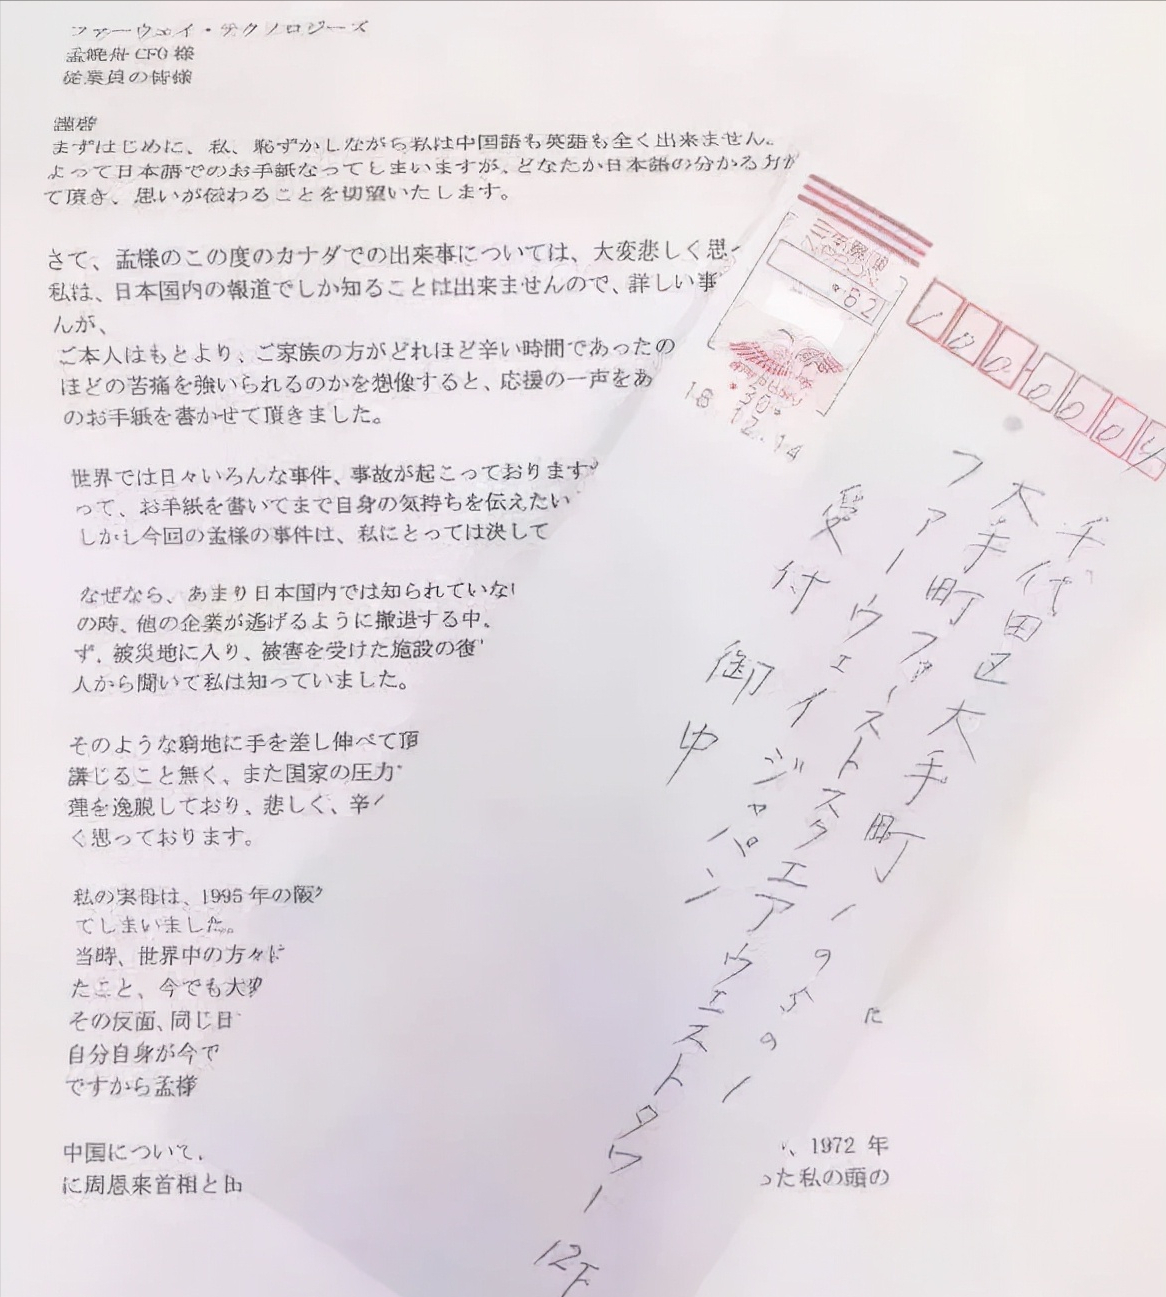 ファーウェイ・テクノロジーズ
孟晩舟 CFO 様
従業員の皆様
謹啓
まずはじめに、私、恥ずかしながら私は中国語も英語も全く出来ません。
よって日本語でのお手紙なってしまいますが、どなたか日本語の分かる方が
て頂き、思いが伝わることを切望いたします。
さて、孟様のこの度のカナダでの出来事については、大変悲しく思
私は、日本国内の報道でしか知ることは出来ませんので、詳しい事
んが、
ご本人はもとより、ご家族の方がどれほど辛い時間であったの
ほどの苦痛を強いられるのかを想像すると、応援の一声をあ
のお手紙を書かせて頂きました。
世界では日々いろんな事件、事故が起こっております
って、お手紙を書いてまで自身の気持ちを伝えたい
しかし今回の孟様の事件は、私にとっては決して
なぜなら、あまり日本国内では知られていない
の時、他の企業が逃げるように撤退する中、
ず、被災地に入り、被害を受けた施設の復
人から聞いて私は知っていました。
そのような窮地に手を差し伸べて頂
講じること無く、また国家の圧力
理を逸脱しており、悲しく、辛
く思っております。
私の実母は、1995 年の阪
てしまいました。
当時、世界中の方々に
たこと、今でも大変
その反面、同じ日
自分自身が今で
ですから孟様
中国について、
、1972 年
に周恩来首相と
った私の頭の
82
30.
18 12.14
1000004
千代田区大手町1の5の1
大手町ファーストスクエアウエストタワー 12F
ファーウェイジャパン
受付 御中
に